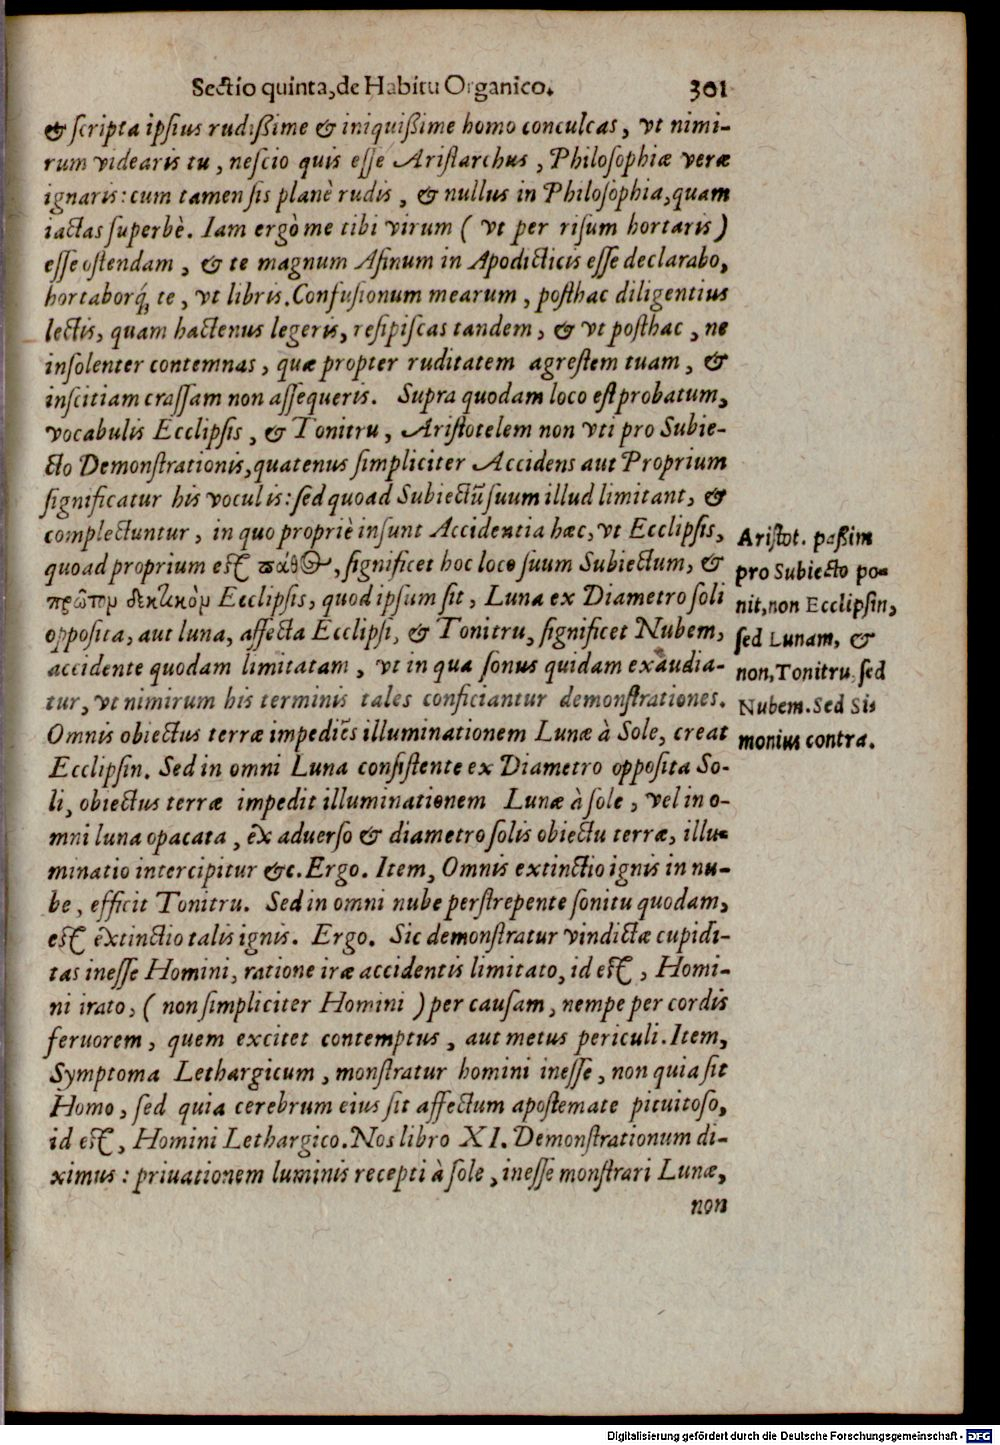 Sectio quinta, de Habitu Organico. 301
& ſcripta ipſius rudißime & iniquißime homo conculcas, vt nimi-
rum videaris tu, neſcio quis eſſe Ariſtarchus, Philoſophiæ veræ
ignaris: cum tamen ſis planè rudis, & nullus in Philoſophia, quam
iactas ſuperbè. Iam ergò me tibi virum ( vt per riſum hortaris )
eſſe oſtendam, & te magnum Aſinum in Apodicticis eſſe declarabo,
hortaborq́ te, vt libris. Confuſionum mearum, poſthac diligentius
lectis, quam hactenus legeris, reſipiſcas tandem, & vt poſthac, ne
inſolenter contemnas, quæ propter ruditatem agreſtem tuam, &
inſcitiam craſſam non aſſequeris. Supra quodam loco eſt probatum,
vocabulis Ecclipſis, & Tonitru, Ariſtotelem non vti pro Subie-
cto Demonſtrationis, quatenus ſimpliciter Accidens aut Proprium
ſignificatur his voculis: ſed quoad Subiectũ ſuum illud limitant, &
complectuntur, in quo propriè inſunt Accidentia hæc, vt Ecclipſis,
quoad proprium eſt πάθος, ſignificet hoc loco ſuum Subiectum, &
πρῶτον δεκτικὸν Ecclipſis, quod ipſum ſit, Luna ex Diametro ſoli
oppoſita, aut luna, affecta Ecclipſi, & Tonitru, ſignificet Nubem,
accidente quodam limitatam, vt in qua ſonus quidam exaudia-
tur, vt nimirum his terminis tales conficiantur demonſtrationes.
Omnis obiectus terræ impediẽs illuminationem Lunæ à Sole, creat
Ecclipſin. Sed in omni Luna conſiſtente ex Diametro oppoſita So-
li, obiectus terræ impedit illuminationem Lunæ à ſole, vel in o-
mni luna opacata, ex aduerſo & diametro ſolis obiectu terræ, illu-
minatio intercipitur &c. Ergo. Item, Omnis extinctio ignis in nu-
be, efficit Tonitru. Sed in omni nube perſtrepente ſonitu quodam,
eſt extinctio talis ignis. Ergo. Sic demonſtratur vindictæ cupidi-
tas ineſſe Homini, ratione iræ accidentis limitato, id eſt, Homi-
ni irato, ( non ſimpliciter Homini ) per cauſam, nempe per cordis
feruorem, quem excitet contemptus, aut metus periculi. Item,
Symptoma Lethargicum, monſtratur homini ineſſe, non quia ſit
Homo, ſed quia cerebrum eius ſit affectum apoſtemate pituitoſo,
id eſt, Homini Lethargico. Nos libro XI. Demonſtrationum di-
ximus: priuationem luminis recepti à ſole, ineſſe monſtrari Lunæ,
non
Ariſtot. paßim
pro Subiecto po-
nit, non Ecclipſin,
ſed Lunam, &
non, Tonitru, ſed
Nubem. Sed Sis
monius contra.
Digitalisierung gefördert durch die Deutsche Forschungsgemeinschaft - DFG